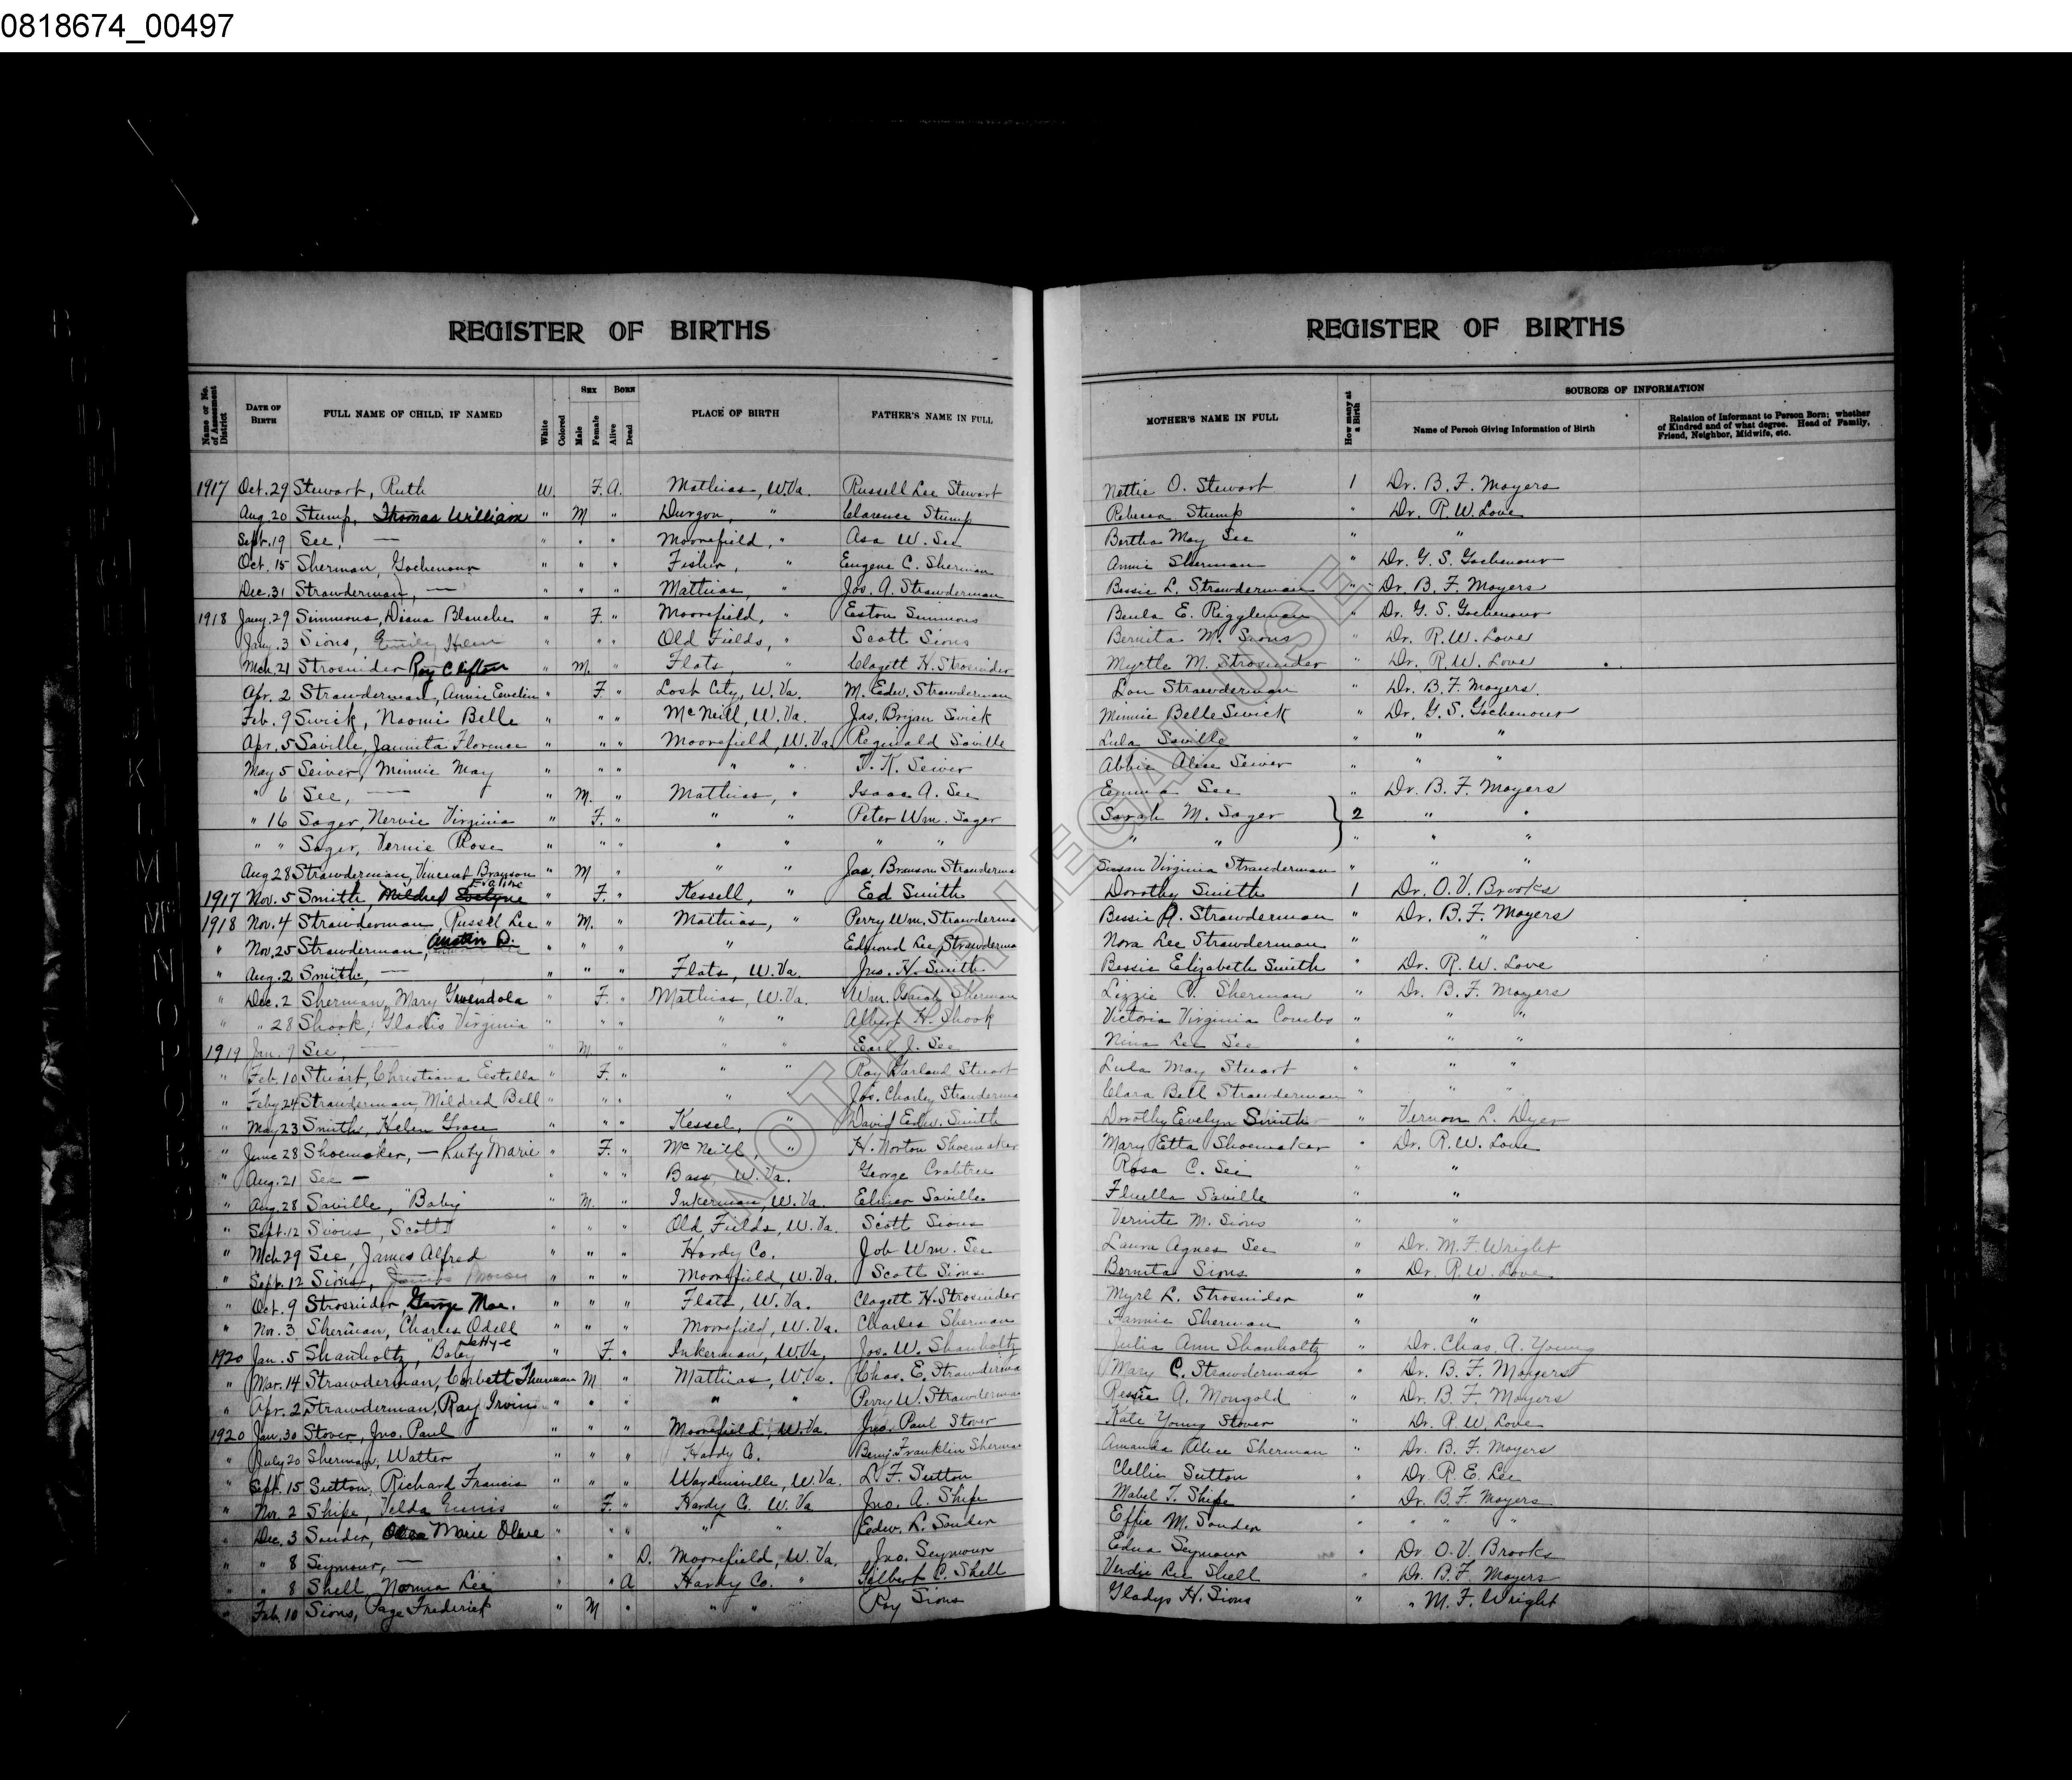 0818674_00497
REGISTER OF BIRTHS
Name or No. of Assessment District
DATE OF BIRTH
FULL NAME OF CHILD, IF NAMED
White
Colored
SEX
Male
Female
BORN
Alive
Dead
PLACE OF BIRTH
FATHER'S NAME IN FULL
1917 Oct. 29 Stewart, Ruth W. F. A. Mathias, W.Va. Russell Lee Stewart
Aug 20 Stump, Thomas William " M " Durgon, " Clarence Stump
Sept. 19 See, — " " " Moorefield, " Asa W. See
Oct. 15 Sherman, Gochenour " " " Fisher, " Eugene C. Sherman
Dec. 31 Strawderman, — " " " Mathias, " Jos. A. Strawderman
1918 Jany. 29 Simmons, Diana Blanche " F. " Moorefield, " Easton Simmons
Jany. 3 Sions, " " " Old Fields, " Scott Sions
Mch. 21 Strosnider Roy Clifton " M. " Flats, " Clagett H. Strosnider
Apr. 2 Strawderman, Annie Evelin " F. " Lost City, W.Va. M. Edw. Strawderman
Feb. 9 Swick, Naomi Belle " " " McNeill, W.Va. Jas. Bryan Swick
Apr. 5 Saville, Jaunita Florence " " " Moorefield, W.Va. Reginald Saville
May 5 Seiver, Minnie May " " " " " K. Seiver
" 6 See, — " M. " Mathias, " Isaac A. See
" 16 Sager, Nervie Virginia " F. " " " Peter Wm. Sager
" " Sager, Vernie Rose " " " " " " "
Aug 28 Strawderman, Vincent Branson " M " " " Jas. Branson Strawderma
1917 Nov. 5 Smith, Mildred Evaline " F. " Kessell, " Ed Smith
1918 Nov. 4 Strawderman, Russel Lee " M. " Mathias, " Perry Wm. Strawderma
" Nov. 25 Strawderman, Austin D. " " " " Edmond Lee Strawderma
" Aug. 2 Smith, — " " " Flats, W.Va. Jno. H. Smith
" Dec. 2 Sherman, Mary Gwendola " F. " Mathias, W.Va. Wm. Isaiah Sherman
" " 28 Shook, Gladis Virginia " " " " " Albert H. Shook
1919 Jan. 9 See, — " M. " " " Earl J. See
" Feb. 10 Stuart, Christiana Estella " F. " " " Roy Harland Stuart
" Feby 24 Strawderman, Mildred Bell " " " " Jos. Charley Strawderma
" May 23 Smith, Helen Grace " " " Kessel, " David Edw. Smith
" June 28 Shoemaker, — Ruby Marie " F. " McNeill, " H. Norton Shoemaker
" Aug. 21 See — " " " Bass, W.Va. George Crabtree
" Aug. 28 Saville, "Baby" M. " Inkerman, W.Va. Elmer Saville
" Sept. 12 Sions, Scott " " " Old Fields, W.Va. Scott Sions
" Mch. 29 See, James Alfred " " " Hardy Co. Job Wm. See
" Sept. 12 Sions, " " " Moorefield, W.Va. Scott Sions
" Oct. 9 Strosnider, George Mac. " " " Flats, W.Va. Clagett H. Strosnider
" Nov. 3 Sherman, Charles Odell " " " Moorefield, W.Va. Charles Sherman
1920 Jan. 5 Shanholtz, "Baby " F. " Inkerman, W.Va. Jos. W. Shanholtz
" Mar. 14 Strawderman, Corbett Thurman M " Mathias, W.Va. Chas. E. Strawderma
" Apr. 2 Strawderman, Ray Irvin " " " " " Perry W. Strawderman
1920 Jan. 30 Stover, Jno. Paul " " " Moorefield, W.Va. Jno. Paul Stover
" July 20 Sherman, Walter " " " Hardy Co. Benj. Franklin Sherma
" Sept. 15 Sutton, Richard Francis " " " Wardensville, W.Va. L. F. Sutton
" Nov. 2 Shipe, Velda Ennis " F. " Hardy Co. W.Va Jno. A. Shipe
" Dec. 3 Souder, Marie Olive " " " " " Edw. L. Souder
" " 8 Seymour, — " " D. Moorefield, W.Va. Jno. Seymour
" " 8 Shell, Norma Lee " " A Hardy Co. " Gilbert C. Shell
" Feb. 10 Sions, Page Frederick " M " " " Roy Sions
REGISTER OF BIRTHS
MOTHER'S NAME IN FULL
How many at a Birth
SOURCES OF INFORMATION
Name of Person Giving Information of Birth
Relation of Informant to Person Born; whether of Kindred and of what degree. Head of Family, Friend, Neighbor, Midwife, etc.
Nettie O. Stewart 1 Dr. B. F. Moyers
Rebecca Stump " Dr. R. W. Love
Bertha May See " "
Annie Sherman " Dr. G. S. Gochenour
Bessie L. Strawderman " Dr. B. F. Moyers
Beula E. Riggleman " Dr. G. S. Gochenour
Bernita M. Sions " Dr. R. W. Love
Myrtle M. Strosnider " Dr. R. W. Love
Lou Strawderman " Dr. B. F. Moyers.
Minnie Belle Swick " Dr. G. S. Gochenour
Lula Saville " " "
Abbie Alice Seiver " " "
Emma See " Dr. B. F. Moyers
Sarah M. Sager 2 " "
" " " " "
Susan Virginia Strawderman " " "
Dorothy Smith 1 Dr. O. V. Brooks
Bessie A. Strawderman " Dr. B. F. Moyers
Nora Lee Strawderman " "
Bessie Elizabeth Smith " Dr. R. W. Love
Lizzie C. Sherman " Dr. B. F. Moyers
Victoria Virginia Combs " " "
Nina Lee See " " "
Lula May Stuart " " "
Clara Bell Strawderman " " "
Dorothy Evelyn Smith " Vernon L. Dyer
Mary Etta Shoemaker " Dr. R. W. Love
Rosa C. See " "
Fluella Saville " "
Vernite M. Sions " "
Laura Agnes See " Dr. M. F. Wright
Bernita Sions " Dr. R. W. Love
Myrl L. Strosnider " "
Fannie Sherman " "
Julia Ann Shanholtz " Dr. Chas. A. Young
Mary C. Strawderman " Dr. B. F. Moyers
Ressie A. Mongold " Dr. B. F. Moyers
Kate Young Stover " Dr. R. W. Love
Amanda Alice Sherman " Dr. B. F. Moyers
Clellie Sutton " Dr. R. E. Lee
Mabel T. Shipe " Dr. B. F. Moyers
Effie M. Souder " " " "
Edna Seymour " Dr. O. V. Brooks
Verdie Lee Shell " Dr. B. F. Moyers
Gladys H. Sions " " M. F. Wright
NOT FOR LEGAL USE